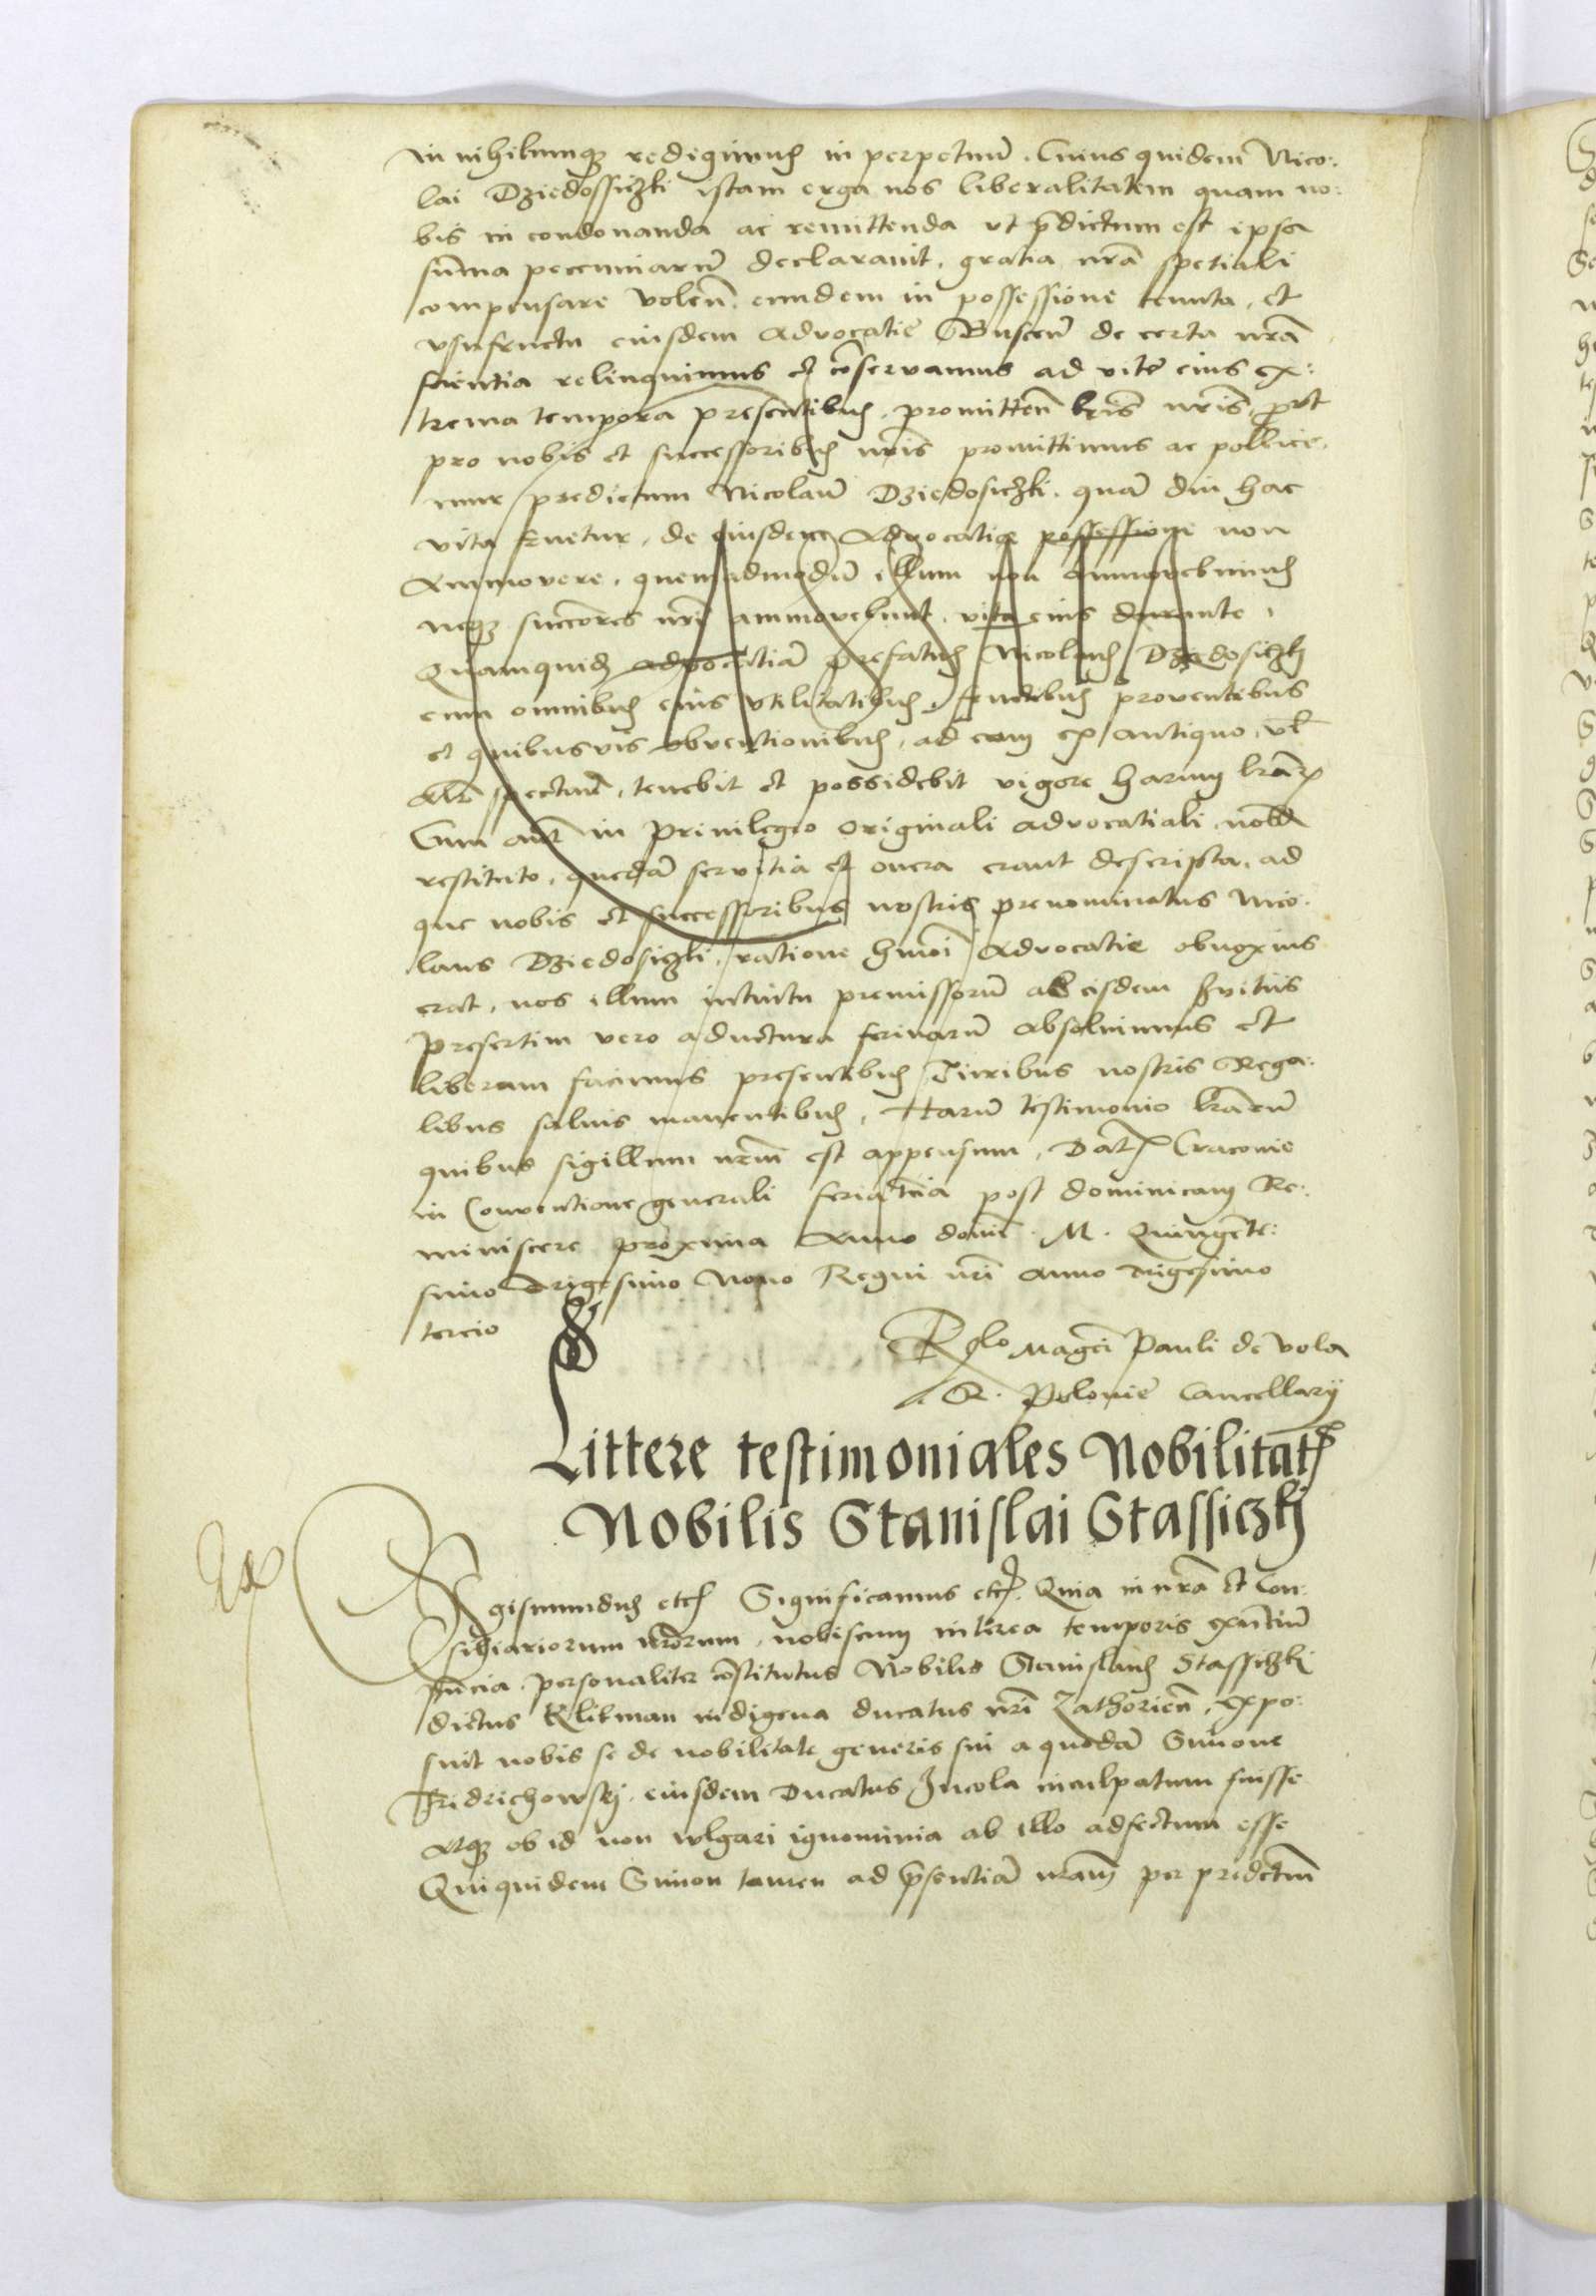 in nihilumq redigimus in perpetuu. Cuius quidem Nico:
lai Dziedossiczki istam erga nos liberalitatem quam no:
bis in condonanda ac remittenda ut pdictum est ipsa
suma pecuniaru declaravit, gratia nra spetiali
compensare volen. eundem in possessione tenuta, et
usufructu eiusdem Advocatie Buscen de certa nra
scientia relinquimus et coservamus ad vite eius ex:
trema tempora presentibus. promitten lris nris, prt
pro nobis et successoribus nris promittimus ac pollice.
mur predictum Nicolau Dziedosiczki. qua diu hac
vita fruetur, de eiusdem Advocatie possessione non
Ammovere, quemadmodu illum non ammovebimus
neq succores nri ammovebunt, vita eius durante,
Quamquid advocatia prefatus Nicolaus Dziedosiczki
cum omnibus eius utilitatibus, fructibus proventibus
et quibusvis obventionibus, ad eam ex antiquo, vl
Alr spectan, tenebit et possidebit vigore harum lrar
Cum aut in Privilegio originali advocatiali nob
restituto, queda servitia et onera erant descripta, ad
que nobis et successoribus nostris prenominatus Nico.
laus Dziedosiczki, ratione hmoi Advocatie obnoxius
erat, nos illum intuitu premissoru ab eisdem svitiis
Presertim vero a ductura ferinaru absolvimus et
liberam facimus presentibus Iuribus nostris Rega:
libus salvis manentibus, Haru testimonio lraru
quibus sigillum nrm est appensum, Dat Cracovie
in Conventione generali feria tcia post dominicam Re:
miniscere proxima Anno domi. M. Quingente:
simo Trigesimo Nono Regni nri anno trigesimo
tercio
Rlo Magci Pauli de Vola
R. Polonie Cancellarij
Littere testimoniales Nobilitat
Nobilis Stanislai Stassiczki
Sigismundus etc Significamus etc. Quia in nra et Con:
siliariorum nrorum, nobiscum in lirea temporis existiu
pncia. personaliter costitutus Nobilis Stanislaus Stassiczki
dictus Klibman indigena ducatus nri Zathorien, expo:
suit nobis se de nobilitate generis sui a quoda Simone
Fridrichowsky. eiusdem Ducatus Incola inculpatum fuisse
Atq ob id non vulgari ignominia ab illo adfectum esse
Qui quidem Simon tamen ad psentia nram per predictum